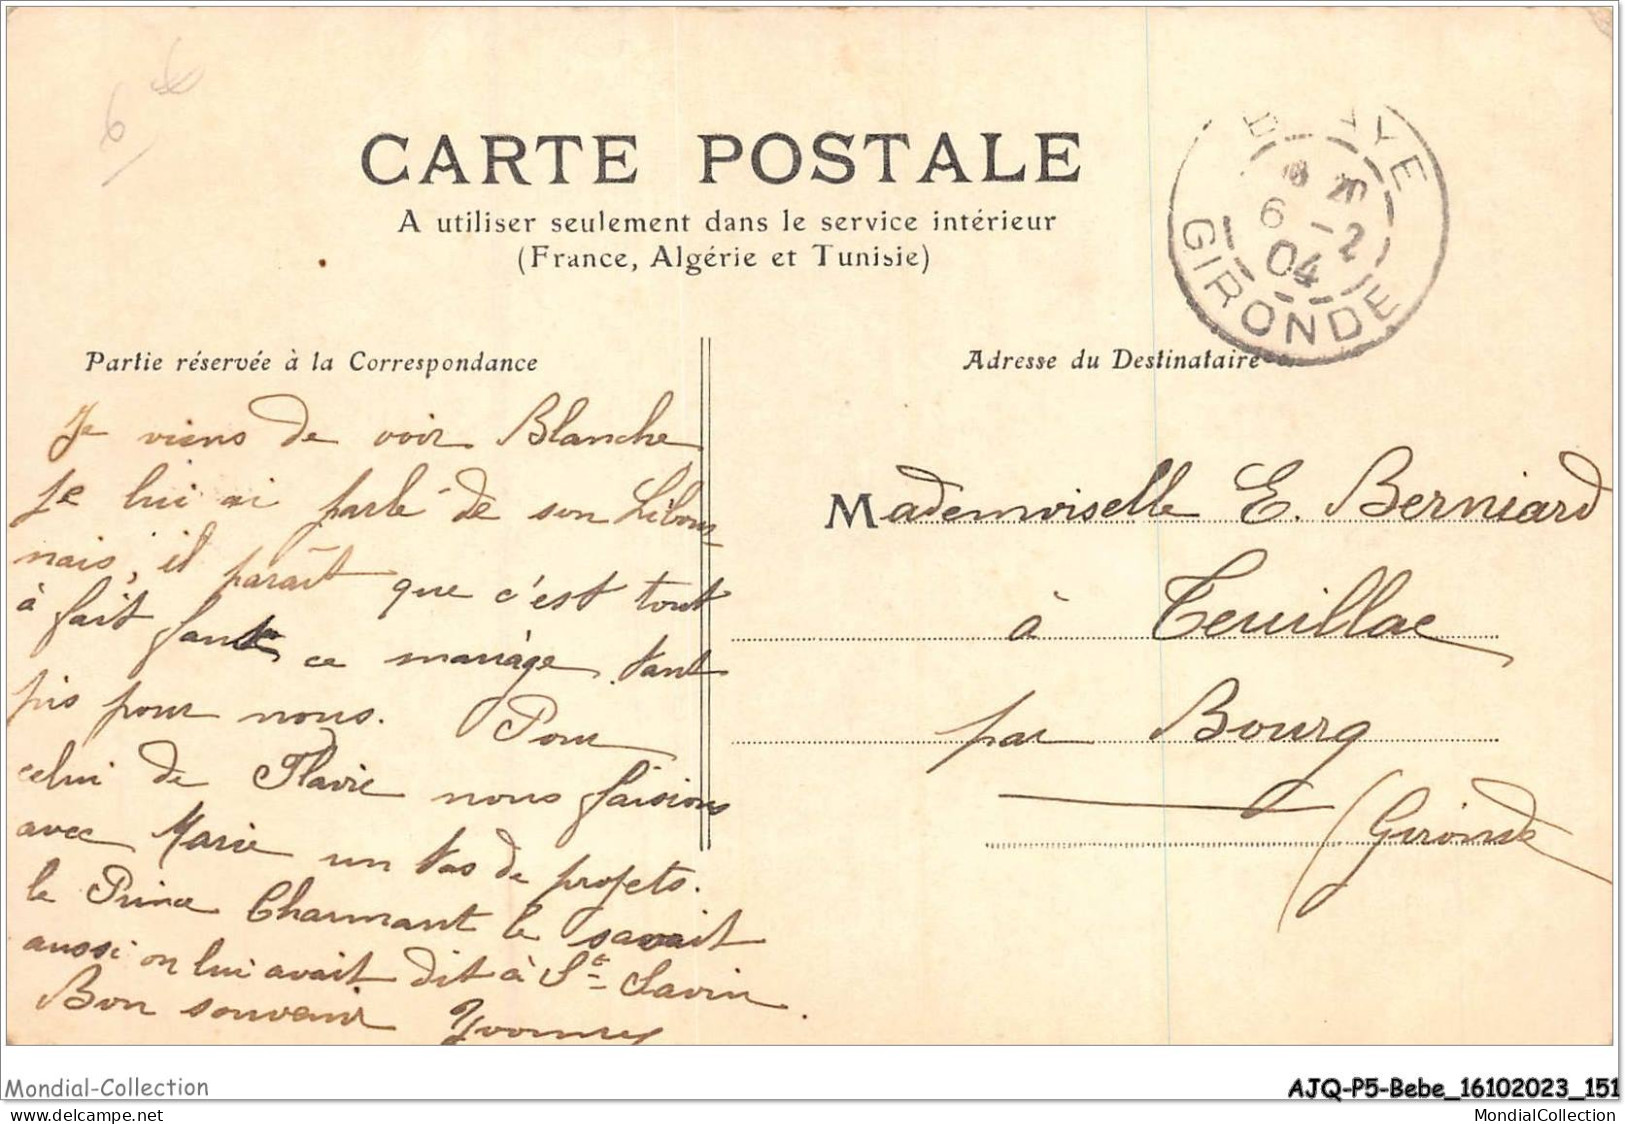 6
CARTE POSTALE
A utiliser seulement dans le service intérieur
(France, Algérie et Tunisie)
YYE
6 -2
04
GIRONDE
Partie réservée à la Correspondance
Je viens de voir Blanche
je lui ai parlé de son Libour-
nais, il paraît que c'est tout
à fait faux ce mariage tant
pis pour nous. Pour
celui de Flavie nous faisions
avec Marie un tas de projets.
le Prince Charmant le savait
aussi on lui avait dit à St Savin.
Bon souvenir Yvonne
Adresse du Destinataire
Mademoiselle E. Berniard
à Teuillac
par Bourg
(Gironde
Mondial-Collection
AJQ-P5-Bebe_16102023_151
MondialCollection.com
MondialCollection